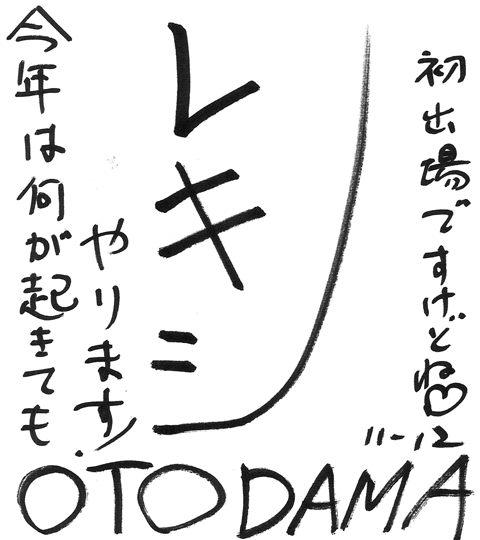 初出場ですけどね♡
11-12
レキシ
やります!
今年は何が起きても
OTODAMA